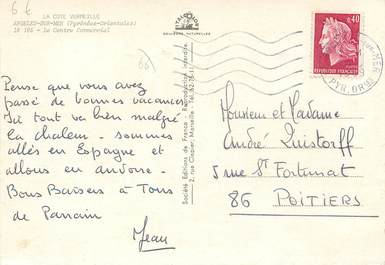 6 €
LA COTE VERMEILLE
ARGELES-SUR-MER (Pyrénées-Orientales)
Le Centre Commercial
COULEURS NATURELLES
Pense que vous avez
passé de bonnes vacances
Ici tout va bien malgré
la chaleur - sommes
allés en Espagne et
allons en andorre -
Bons Baisers à Tous
de Parrain
Jean
Société Editions de France - Reproduction interdite
2, rue Clapier, Marseille - Tél. 62-15-11
0,40
REPUBLIQUE FRANÇAISE
PYR. ORles
Monsieur et Madame
André Quistorff
5 rue St Fortunat
86 POITIERS